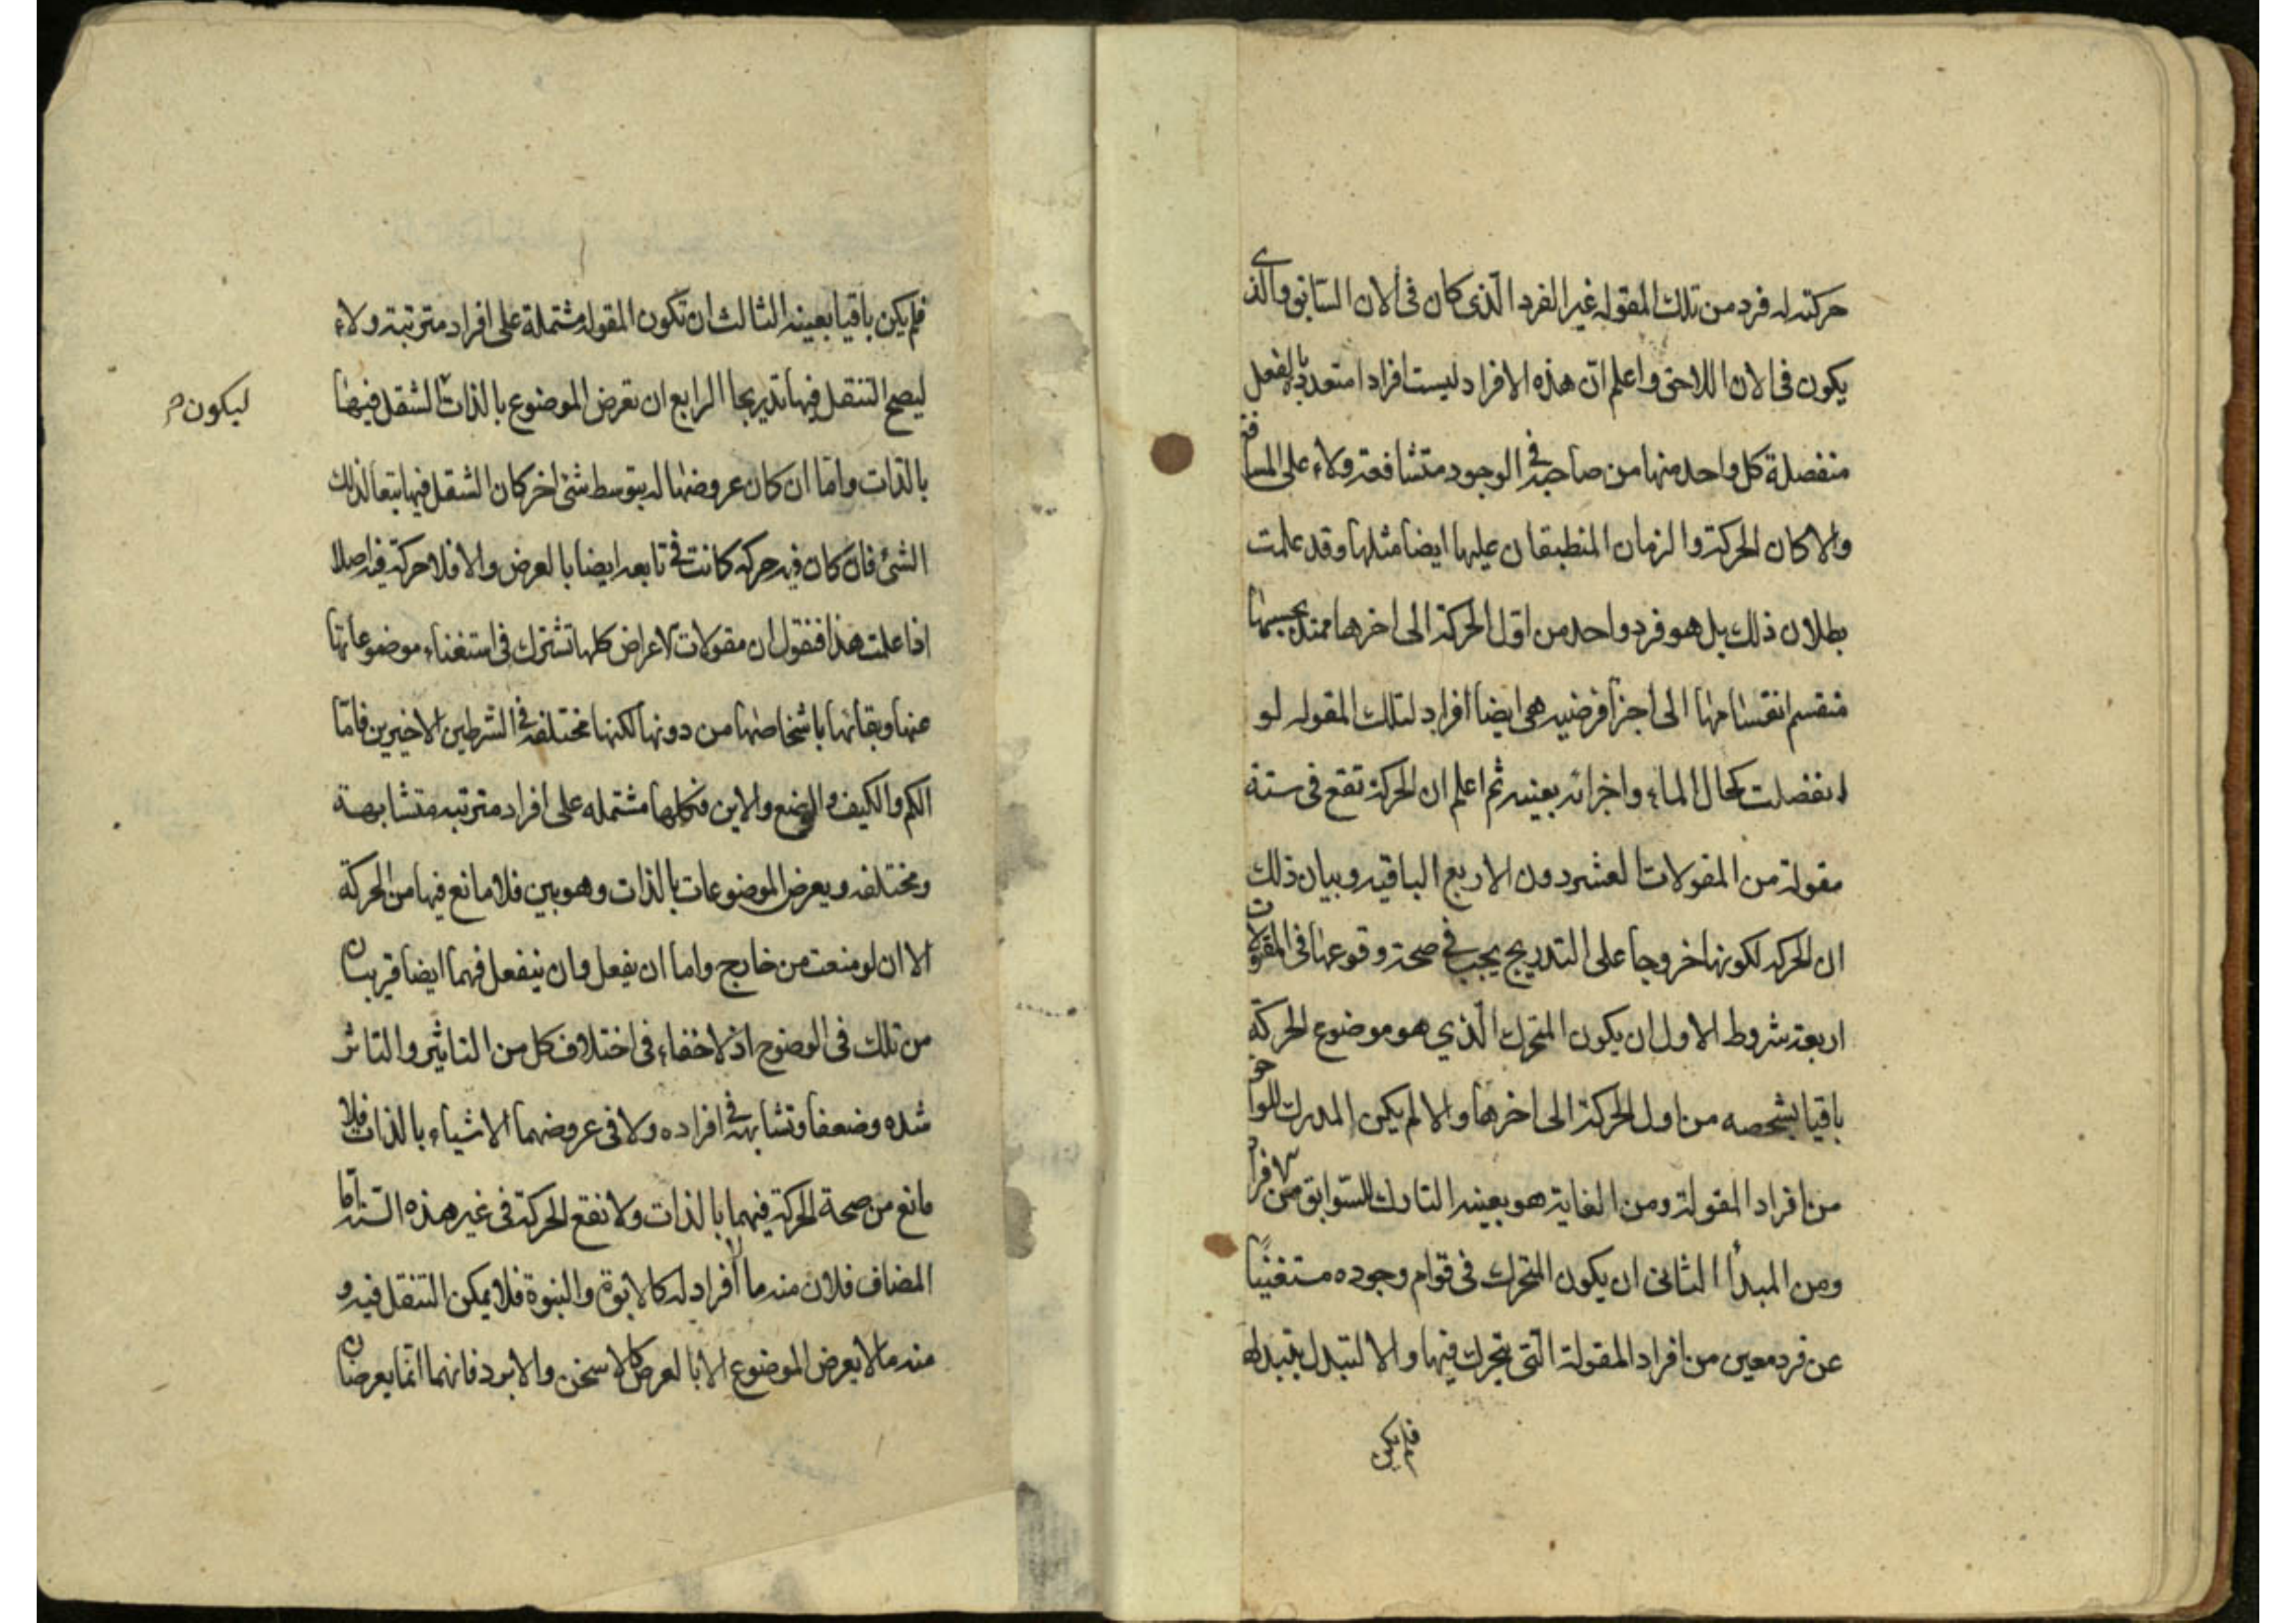 حركته له فرد من تلك المقوله غير الفرد الّذى كان فى الان السّابق والّذى
يكون فى الان اللاحق واعلم انّ هذه الافراد ليست افرادا متعددة بالفعل
منفصلة كل واحد منها من صاحبه فى الوجود متشافعة ولاء على المسافة
والا كان الحركة والزمان المنطبقان عليها ايضا مثلها وقد علمت
بطلان ذلك بل هو فرد واحد من اوّل الحركة الى اخرها ممتد بحسبها
منقسم انقسامها الى اجزا فرضيه هى ايضا افراد لتلك المقوله لو
انفصلت كحال الماء واجزائه بعينه ثم اعلم ان الحركة تقع فى ستة
مقولة من المقولات العشر دون الاربع الباقيه وبيان ذلك
ان الحركه لكونها خروجا على التدريج يجب فى صحة وقوعها فى المقولات
اربعة شروط الاول ان يكون المتحرك الّذي هو موضوع الحركة
باقيا بشخصه من اول الحركة الى اخرها والا لم يكن المدرك للواحق
من افراد المقولة ومن الغاية هو بعينه التارك للسّوابق من الافراد
ومن المبدأ الثانى ان يكون المتحرك فى قوام وجوده مستغنيًا
عن فرد معين من افراد المقولة الّتى يتحرك فيها والا لتبدل بتبدله
فلم يكن
فلم يكن باقيا بعينه الثالث ان تكون المقوله مشتملة على افراد مترتبة ولاء
ليصح التنقل فيها تدريجا الرابع ان تعرض الموضوع بالذات التنقل فيها
ليكون م
بالذات وامّا ان كان عروضها له بتوسط شئ اخر كان التنقل فيها تبعا لذلك
الشئ فان كان فيه حركه كانت فى تابعه ايضا بالعرض والا فلا حركة فيه اصلا
اذا علمت هذا فنقول ان مقولات الاعراض كلها تشترك فى استغناء موضوعاتها
عنها وبقائها باشخاصها من دونها لكنها مختلفه فى الشرطين الاخيرين فامّا
الكم والكيف والوضع والاين فكلها مشتمله على افراد مترتبه متشابهة
ومختلفه ويعرض الموضوعات بالذات وهو بين فلا مانع فيها من الحركة
الا ان لو منعت من خارج واما ان يفعل وان ينفعل فهما ايضا قريبان
من تلك فى الوضوح اذ لا خفاء فى اختلاف كل من التاثير والتاثر
شده وضعفا وتشابهه فى افراده ولا فى عروضهما الاشياء بالذات فلا
مانع من صحة الحركة فيهما بالذات ولا تقع الحركة فى غير هذه الستة امّا
المضاف فلان منه ما لا افراد له كالابوة والبنوة فلا يمكن التنقل فيه و
منه ما لا يعرض الموضوع الا بالعرض كالاسخن والابرد فانهما انّما يعرضان